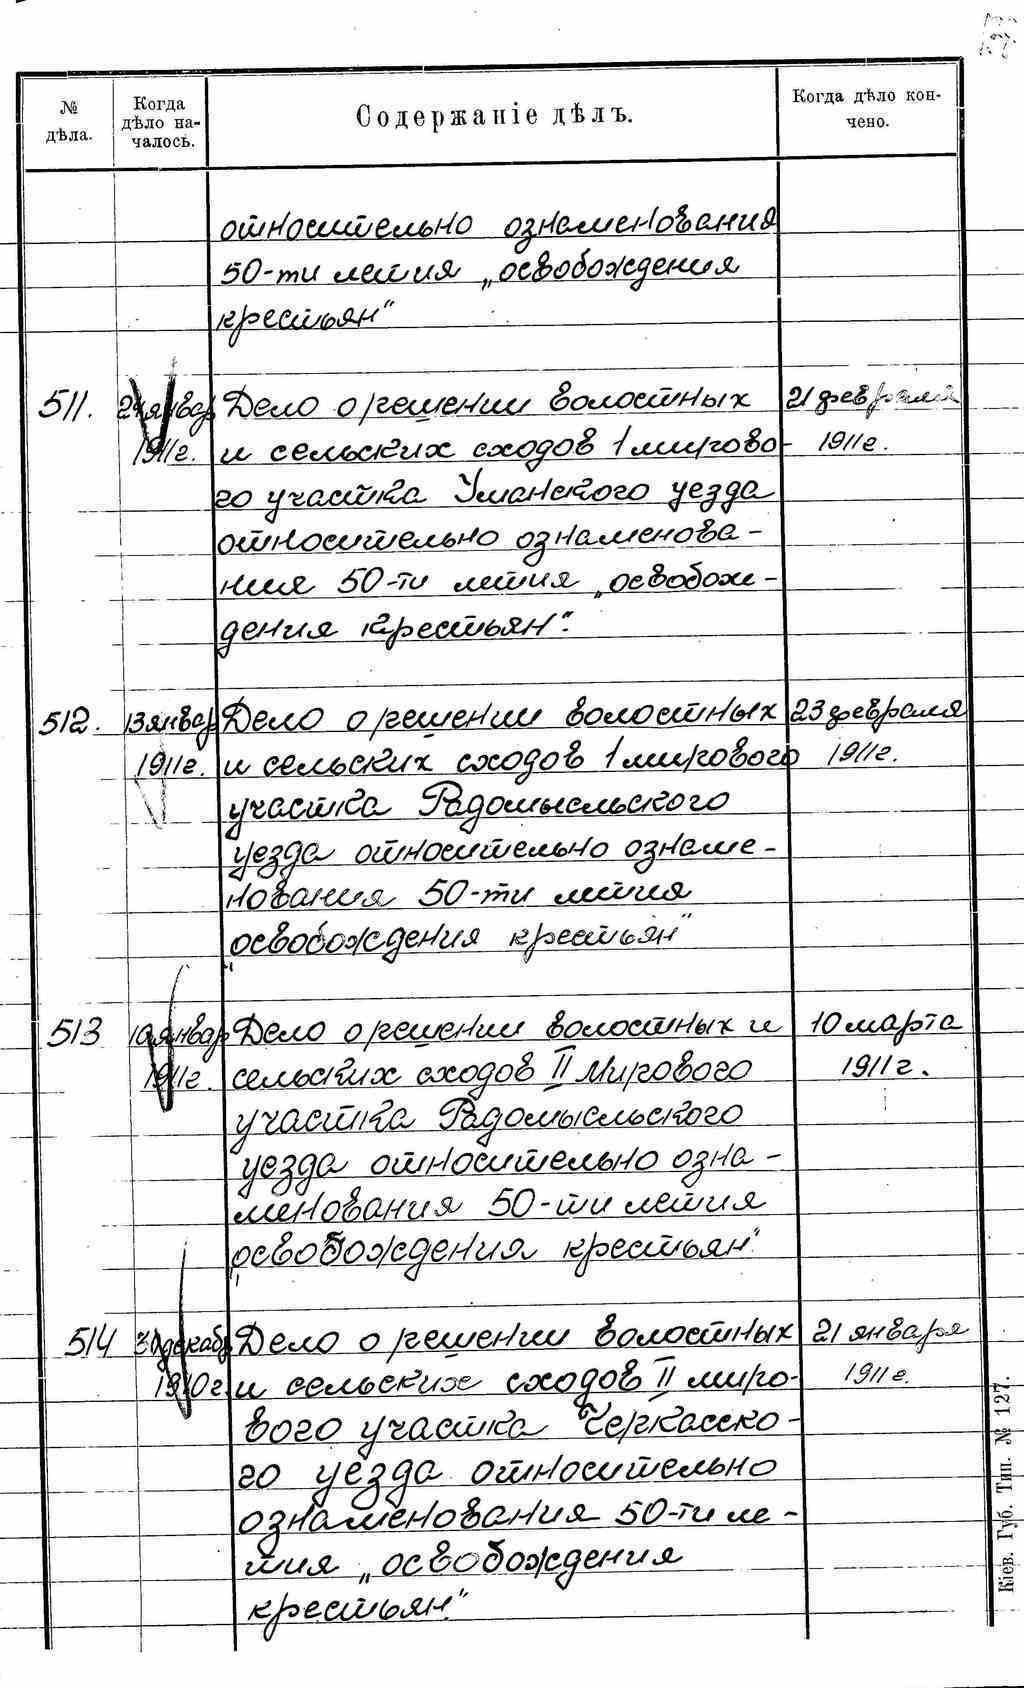 № дѣла.
Когда дѣло на-
чалось.
Содержаніе дѣлъ.
Когда дѣло кон-
чено.
относительно ознаменования
50-ти летия „освобождения
крестьян"
511. 24 январ 1911 г.
Дело о решении волостных
и сельских сходов 1 мирово-
го участка Уманского уезда
относительно ознаменова-
ния 50-ти летия „освобож-
дения крестьян".
21 февраля
1911 г.
512. 13 январ 1911 г.
Дело о решении волостных
и сельских сходов 1 мирового
участка Радомысльского
уезда относительно ознаме-
нования 50-ти летия
„освобождения крестьян"
23 февраля
1911 г.
513 10 январ 1911 г.
Дело о решении волостных и
сельских сходов II Мирового
участка Радомысльского
уезда относительно озна-
менования 50-ти летия
„освобождения крестьян".
10 марта
1911 г.
514 30 декабр 1910 г.
Дело о решении волостных
и сельских сходов II миро-
вого участка Черкасско-
го уезда относительно
ознаменования 50-ти ле-
тия „освобождения
крестьян."
21 января
1911 г.
Кіев. Губ. Тип. № 127.